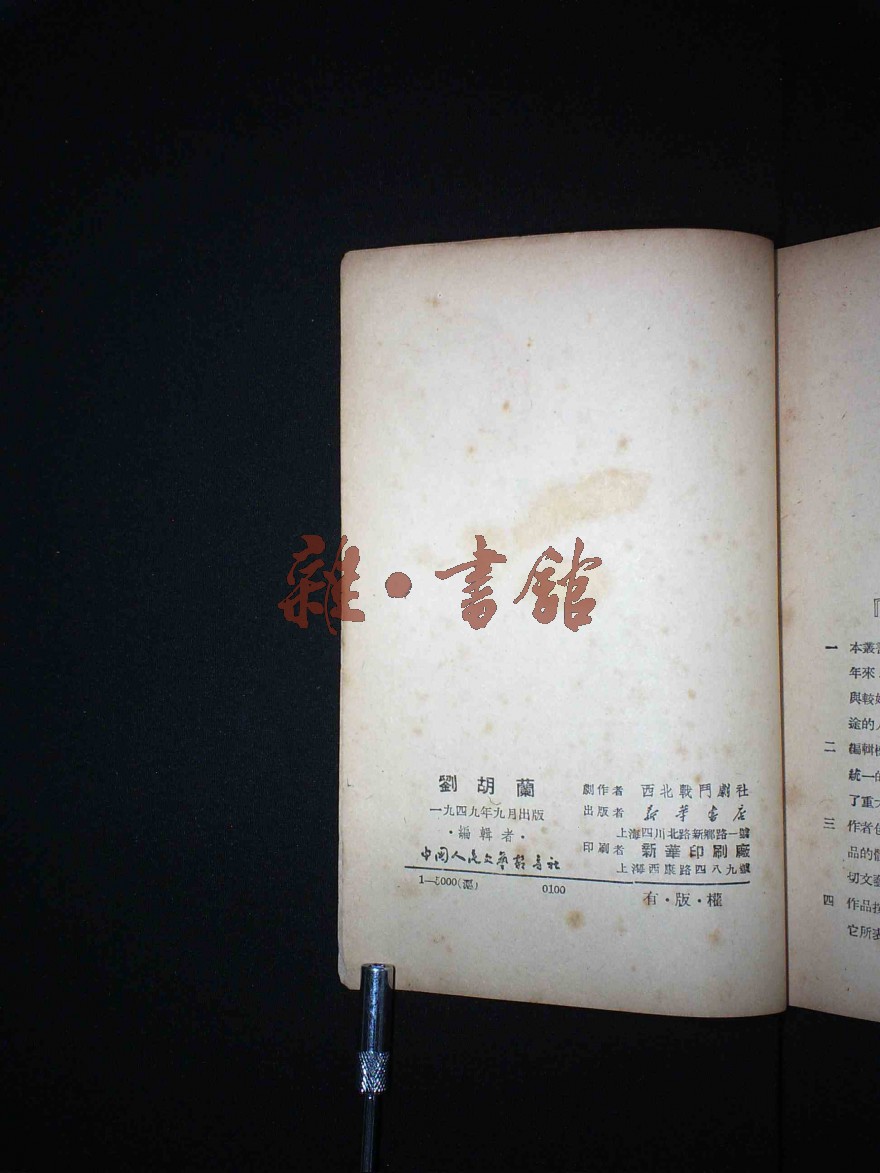 雜·書館
劉胡蘭
一九四九年九月出版
·編輯者·
中國人民文藝叢書社
1—5000(滬) 0100
劇作者 西北戰鬥劇社
出版者 新華書店
上海四川北路新鄉路一號
印刷者 新華印刷廠
上海西康路四八九號
有·版·權
『
一 本叢書
年來
與較
途的
二 編輯
統一的
了重大
三 作者包
品的
切文藝
四 作品按
它所